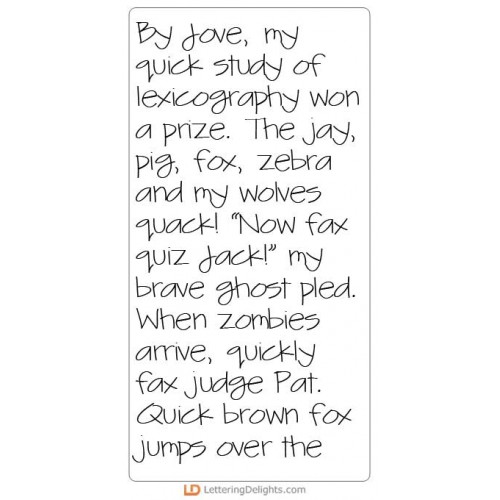 By Jove, my
quick study of
lexicography won
a prize. The jay,
pig, fox, zebra
and my wolves
quack! "Now fax
quiz Jack!" my
brave ghost pled.
When zombies
arrive, quickly
fax judge Pat.
Quick brown fox
jumps over the
LD LetteringDelights.com